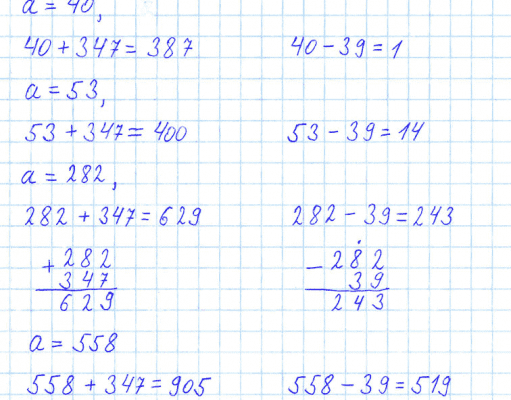 a = 40,
40 + 347 = 387 40 - 39 = 1
a = 53,
53 + 347 = 400 53 - 39 = 14
a = 282,
282 + 347 = 629 282 - 39 = 243
+ 282 - 282
347 39
629 243
a = 558
558 + 347 = 905 558 - 39 = 519